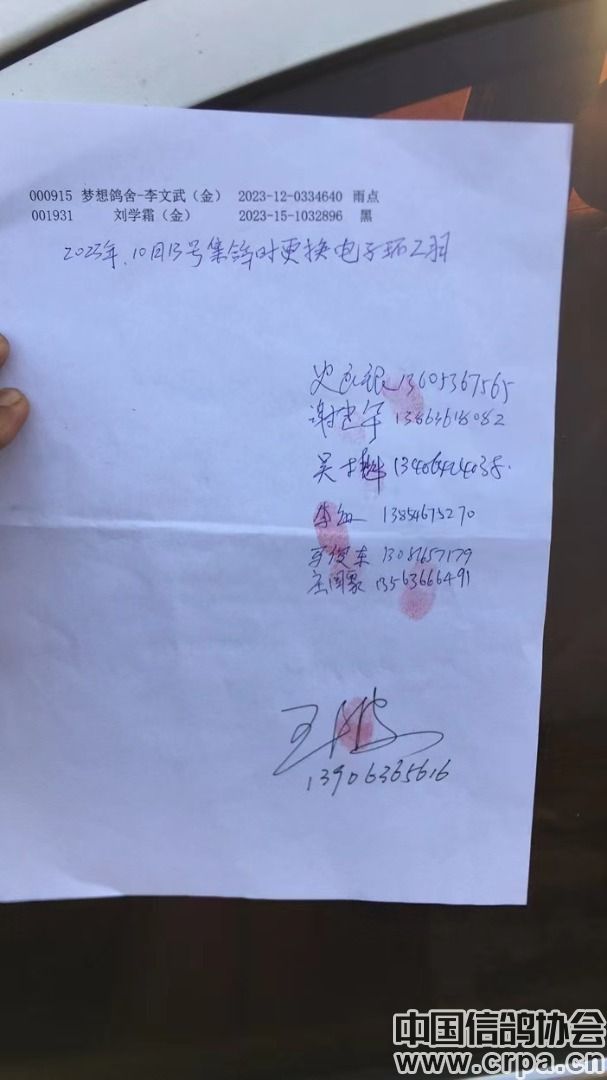 000915 梦想鸽舍-李文武（金） 2023-12-0334640 雨点
001931 刘学霜（金） 2023-15-1032896 黑
2023年.10月13号集鸽时更换电子环2羽
13605367565
谢建军 13864618082
吴 13406424038
李 13854675270
东 13081657179
13563666491
王
13906365616
中国信鸽协会
www.crpa.cn